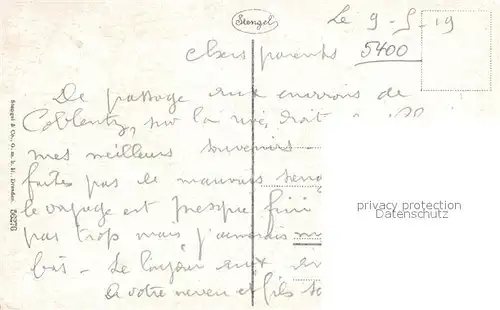 Stengel
Le 9-5-19
chers parents
5400
De passage aux environs de
Coblentz, sur la rive droite
mes meilleurs souvenirs
faites pas de mauvais sang
le voyage est presque fini
pas trop mais j'aimerais
bas - Le bonjour aux
A votre neveu et fils
Stengel & Co., G. m. b. H., Dresden. 
privacy protection
Datenschutz